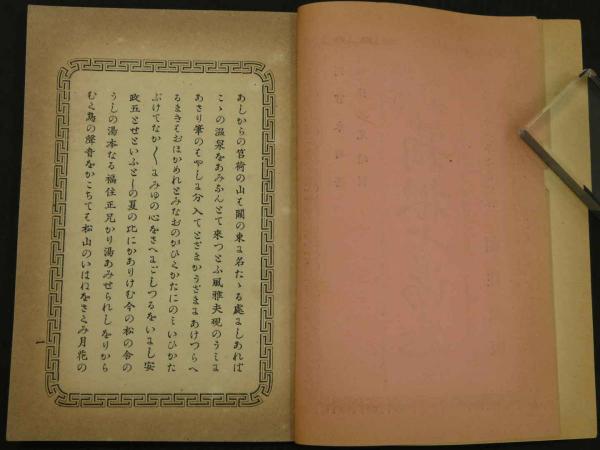 あしからの筥荷の山も關の東ま名たゝる處ましあれば
こゝの温泉をあみなんとて來つとふ風雅夫硯のうみま
あさり筆のもやしま分入てとざまかうざままあけつらへ
るまきもおほかめれとみなおのがひくかたにのミいひかた
ぶけてなか〳〵まみゆの心をさへまごしつるをいまし安
政五とせといふとしの夏の比にかありけむ今の松の舎の
うしの湯本なる福住正兄かり湯あみせられしをりから
むく鳥の聲音をかこちても松山のいはねをさくみ月花の
一